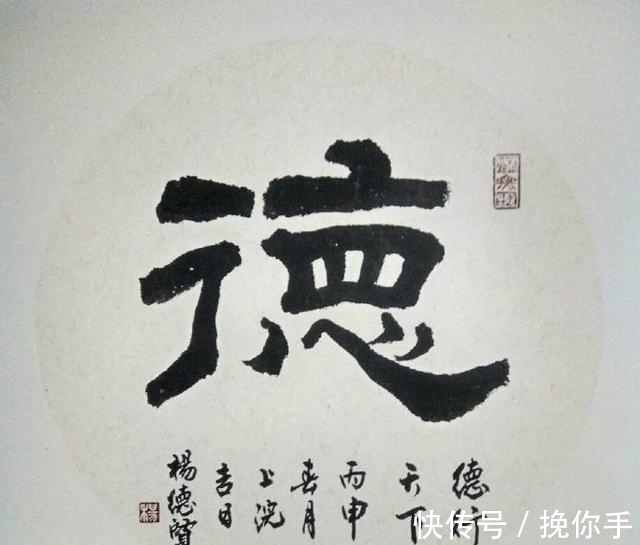 德
德行
天下
丙申
春月
上浣
吉日
楊德賢
楊
快传号 / 挽你手